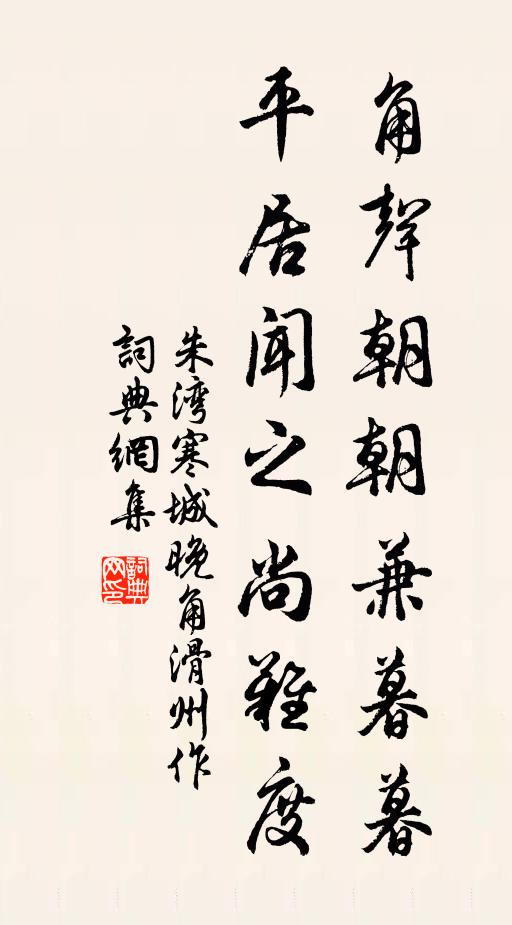 角聲朝朝兼暮暮
平居聞之尚難度
朱湾寒城晚角滑州作
詞典網集
詞典
网印